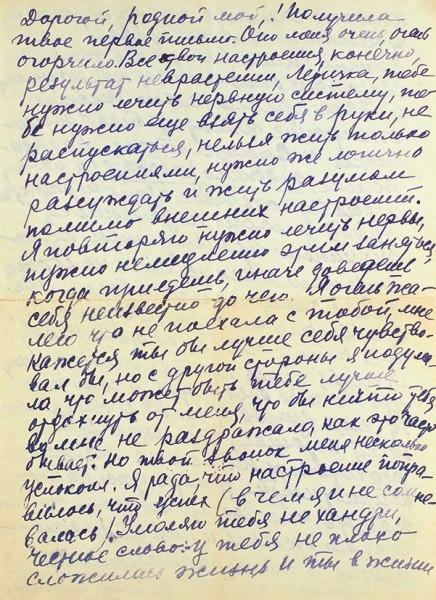 Дорогой, родной мой,! Получила
твое первое письмо. Оно меня очень, очень
огорчило. Все твои настроения, конечно,
результат неврастении, Лёничка, тебе
нужно лечить нервную систему, те-
бе нужно еще взять себя в руки, не
распускаться, нельзя жить только
настроениями, нужно же логично
рассуждать и жить разумом
помимо внешних настроений.
Я повторяю нужно лечить нервы,
нужно немедленно этим заняться,
когда приедешь, иначе доведешь
себя неизвестно до чего. Я
лего что не поехала с тобой, мне
кажется ты бы лучше себя чувство-
вал бы, но с другой стороны я подума-
ла, что может быть тебе лучше
отдохнуть от меня, что бы никто тебя
не раздражал, как это часто
бывает. Но твой звонок меня несколько
успокоил. Я рада, что настроение попра-
вилось, что успех (в чем я и не сомне-
валась). Умоляю тебя не хандри,
честное слово у тебя не плохо
сложилась жизнь и ты в жизни